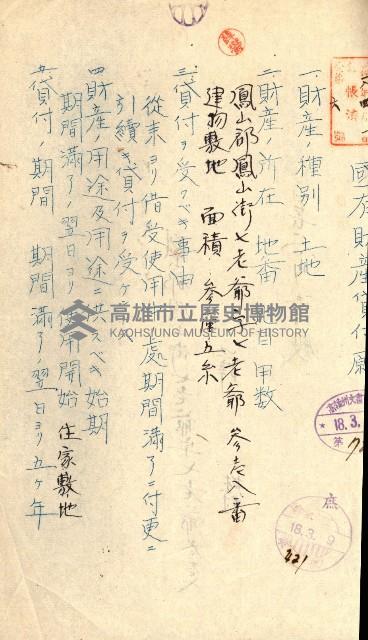 國有財產貸付願
一、財產ノ種別 土地
二、財產ノ所在 地番 目 甲數
鳳山郡鳳山街七老爺字七老爺 參壱八番
建物敷地 面積 參厘五糸
三、貸付ヲ受クベキ事由
從來ヨリ借受使用 處期間滿了ニ付更ニ
引續キ貸付ヲ受ケ
四、財產ノ用途及用途ニ供スベキ始期
期間滿了ノ翌日ヨリ使用開始 住家敷地
五、貸付ノ期間 期間滿了ノ翌日ヨリ五ヶ年
高雄市立歷史博物館
KAOHSIUNG MUSEUM OF HISTORY
18.3.
庶
18.3.9